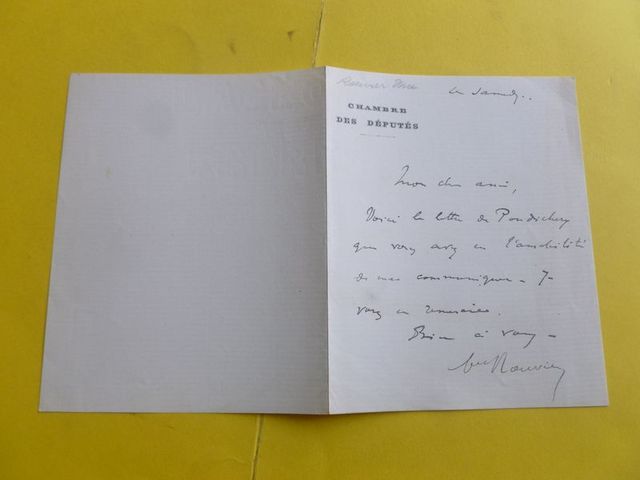 Rouvier
ce samedi.
CHAMBRE
DES DÉPUTÉS
Mon cher ami,
Voici la lettre de Pondichery
que vous avez eu l'amabilité
de me communiquer. Je
vous en remercie.
Bien à vous
Rouvier